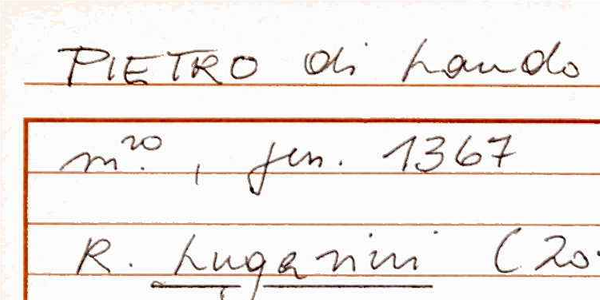 PIETRO di Lando
m.ro, gen. 1367
R. Luganini (20.